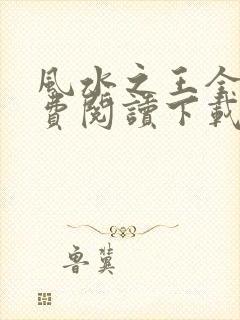 風水之王全
費閱讀下載
魯冀